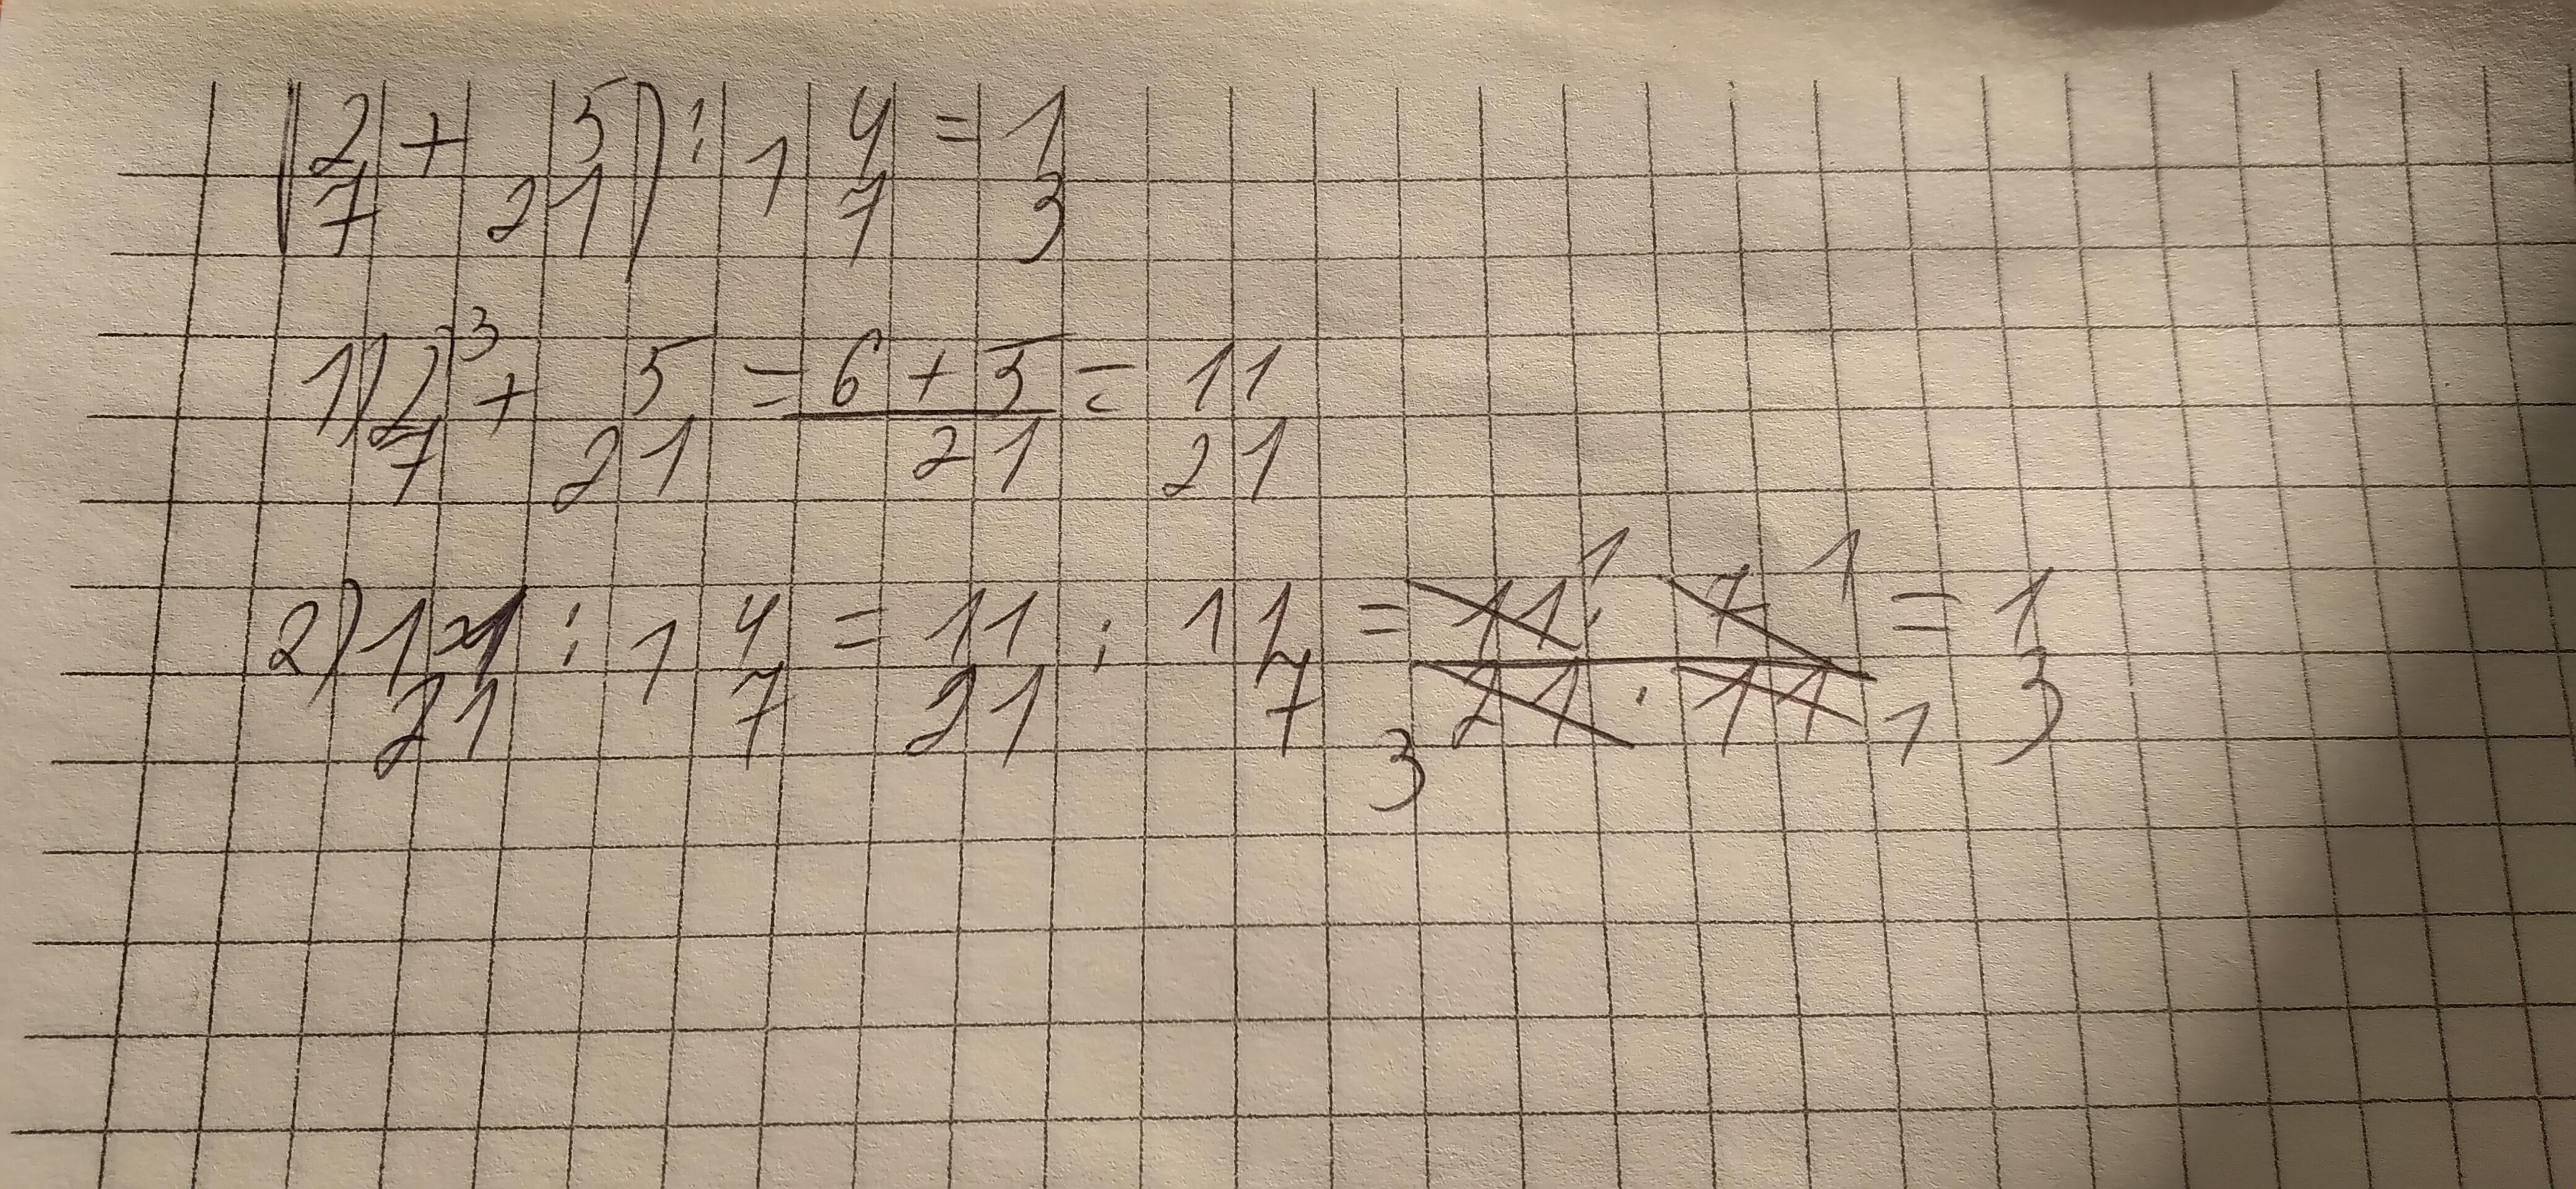 (2/7 + 5/21) : 1 4/7 = 1/3
1) 2/7 ³ + 5/21 = (6 + 5)/21 = 11/21
2) 11/21 : 1 4/7 = 11/21 : 11/7 = (11 ¹ · 7 ¹)/(3 21 · 11 1) = 1/3